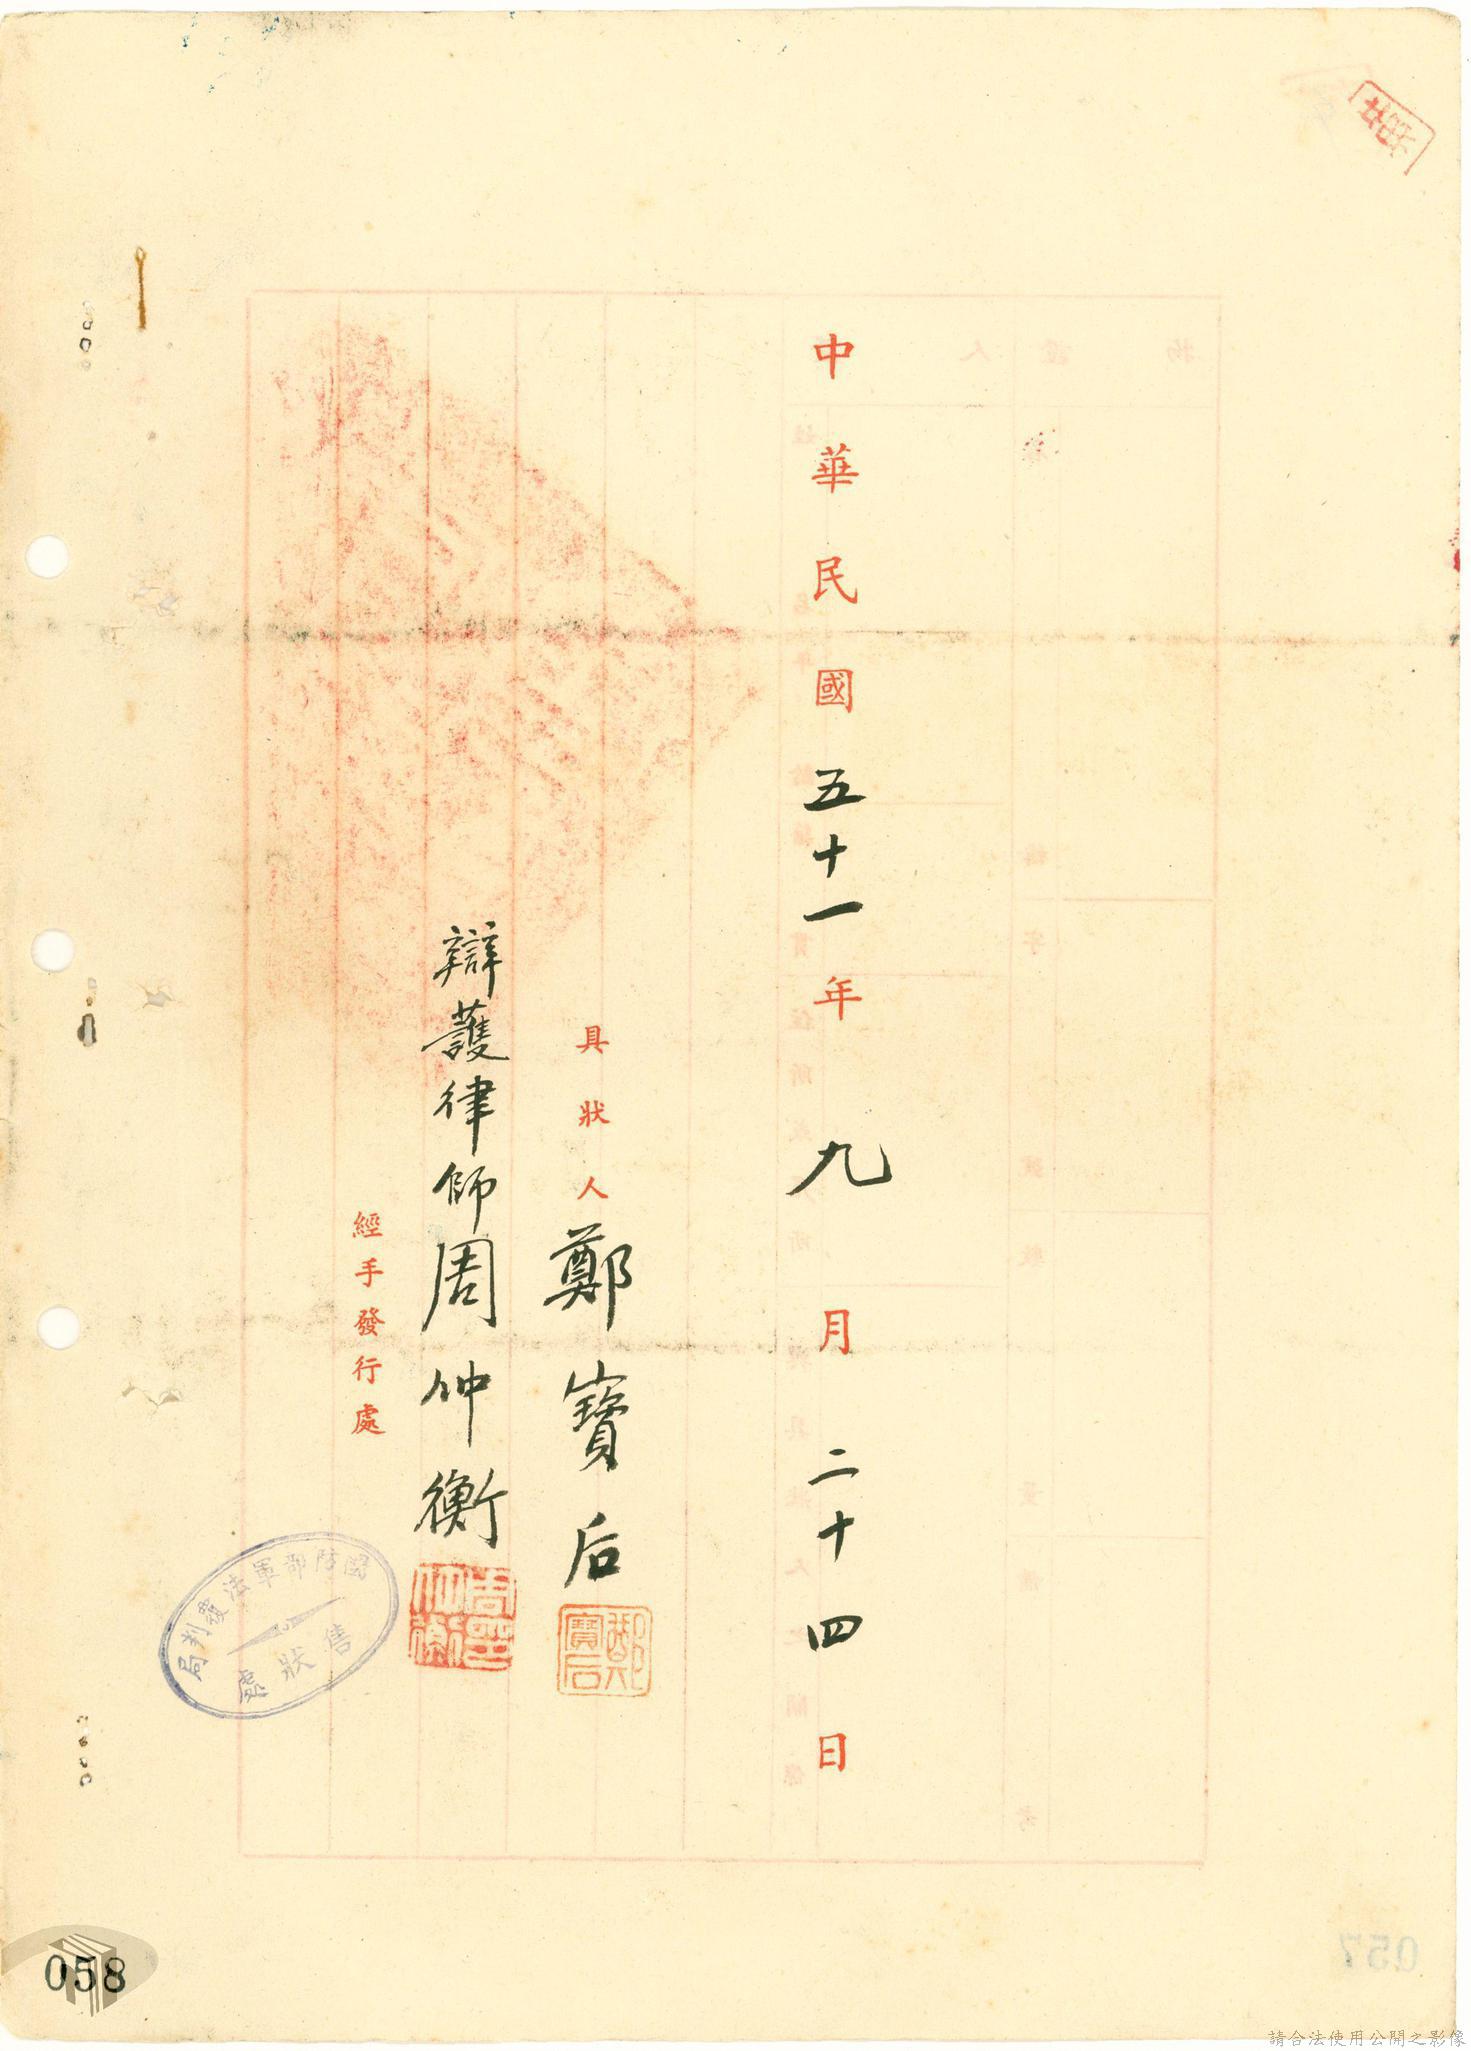 中華民國五十一年九月二十四日
具狀人鄭寶后
鄭寶后
辯護律師周仲衡
周仲衡
經手發行處
國防部軍法覆判局
售狀處
058
057
請合法使用公開之影像